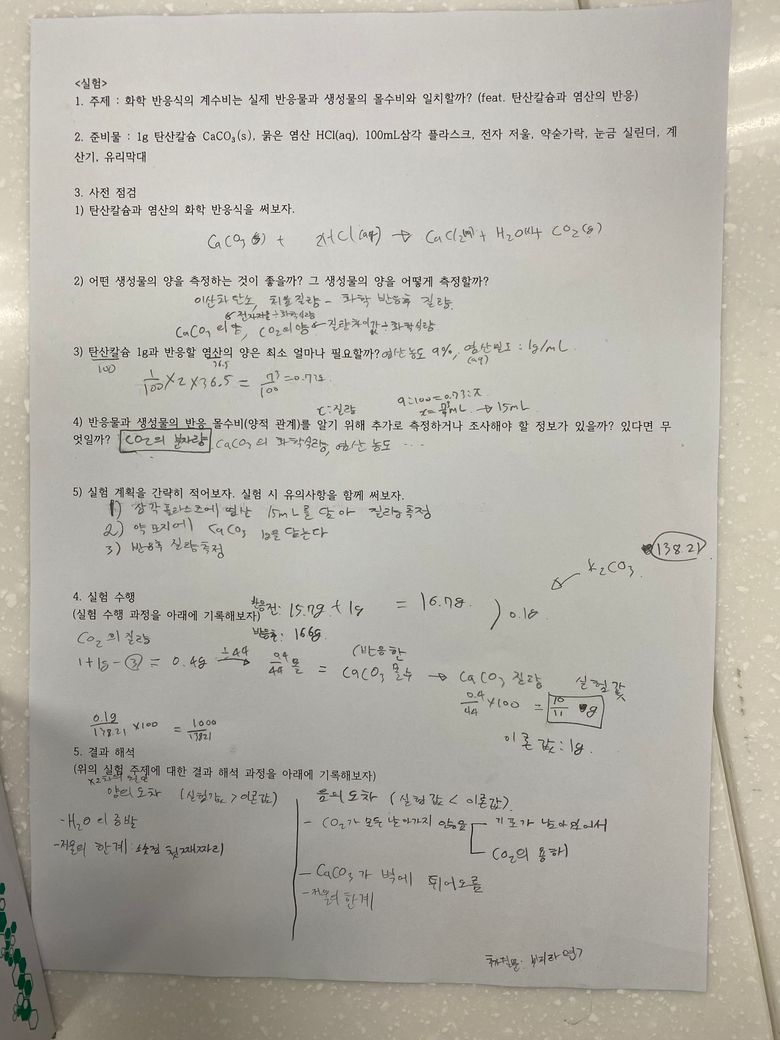 <실험>
1. 주제 : 화학 반응식의 계수비는 실제 반응물과 생성물의 몰수비와 일치할까? (feat. 탄산칼슘과 염산의 반응)
2. 준비물 : 1g 탄산칼슘 CaCO₃(s), 묽은 염산 HCl(aq), 100mL삼각 플라스크, 전자 저울, 약숟가락, 눈금 실린더, 계
산기, 유리막대
3. 사전 점검
1) 탄산칼슘과 염산의 화학 반응식을 써보자.
CaCO₃(s) + 2HCl(aq) → CaCl₂(aq) + H₂O(l) + CO₂(g)
2) 어떤 생성물의 양을 측정하는 것이 좋을까? 그 생성물의 양을 어떻게 측정할까?
이산화탄소, 처음질량 - 화학 반응후 질량
전자저울÷화학식량
CaCO₃의 양, CO₂의 양 ← 질량차이값÷화학식량
3) 탄산칼슘 1g과 반응할 염산의 양은 최소 얼마나 필요할까? 염산농도 9%, 염산밀도 : 1g/mL
100 36.5 (aq)
1/100 × 2 × 36.5 = 73/100 = 0.73g
x:질량
9:100 = 0.73:x
→ 15mL
4) 반응물과 생성물의 반응 몰수비(양적 관계)를 알기 위해 추가로 측정하거나 조사해야 할 정보가 있을까? 있다면 무
엇일까? CO₂의 분자량, CaCO₃의 화학식량, 염산 농도 ...
5) 실험 계획을 간략히 적어보자. 실험 시 유의사항을 함께 써보자.
1) 삼각플라스크에 염산 15mL를 담아 질량측정
2) 약포지에 CaCO₃ 1g을 담는다
3) 반응후 질량측정
138.21
K₂CO₃
4. 실험 수행
(실험 수행 과정을 아래에 기록해보자)
반응전: 15.7g + 1g = 16.7g
반응후: 16.6g
0.1g
CO₂의 질량
1+1g-③ = 0.4g ÷44 → 0.4/44 몰 = (반응한 CaCO₃ 몰수 → CaCO₃ 질량
0.4/44 × 100 = 10/11 g
실험값
이론값: 1g.
0.1g/138.21 × 100 = 1000/13821
5. 결과 해석
(위의 실험 주제에 대한 결과 해석 과정을 아래에 기록해보자)
양의 오차 (실험값 > 이론값)
- H₂O의 증발
- 저울의 한계: 소숫점 첫째짜리
음의 오차 (실험값 < 이론값)
- CO₂가 모두 날아가지 않음
기포가 남아있어서
CO₂의 용해
- CaCO₃가 벽에 튀어오름
- 저울의 한계